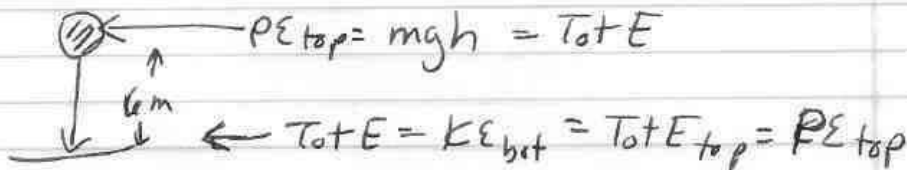 PE top = mgh = Tot E
6 m
Tot E = KE bot = Tot E top = PE top